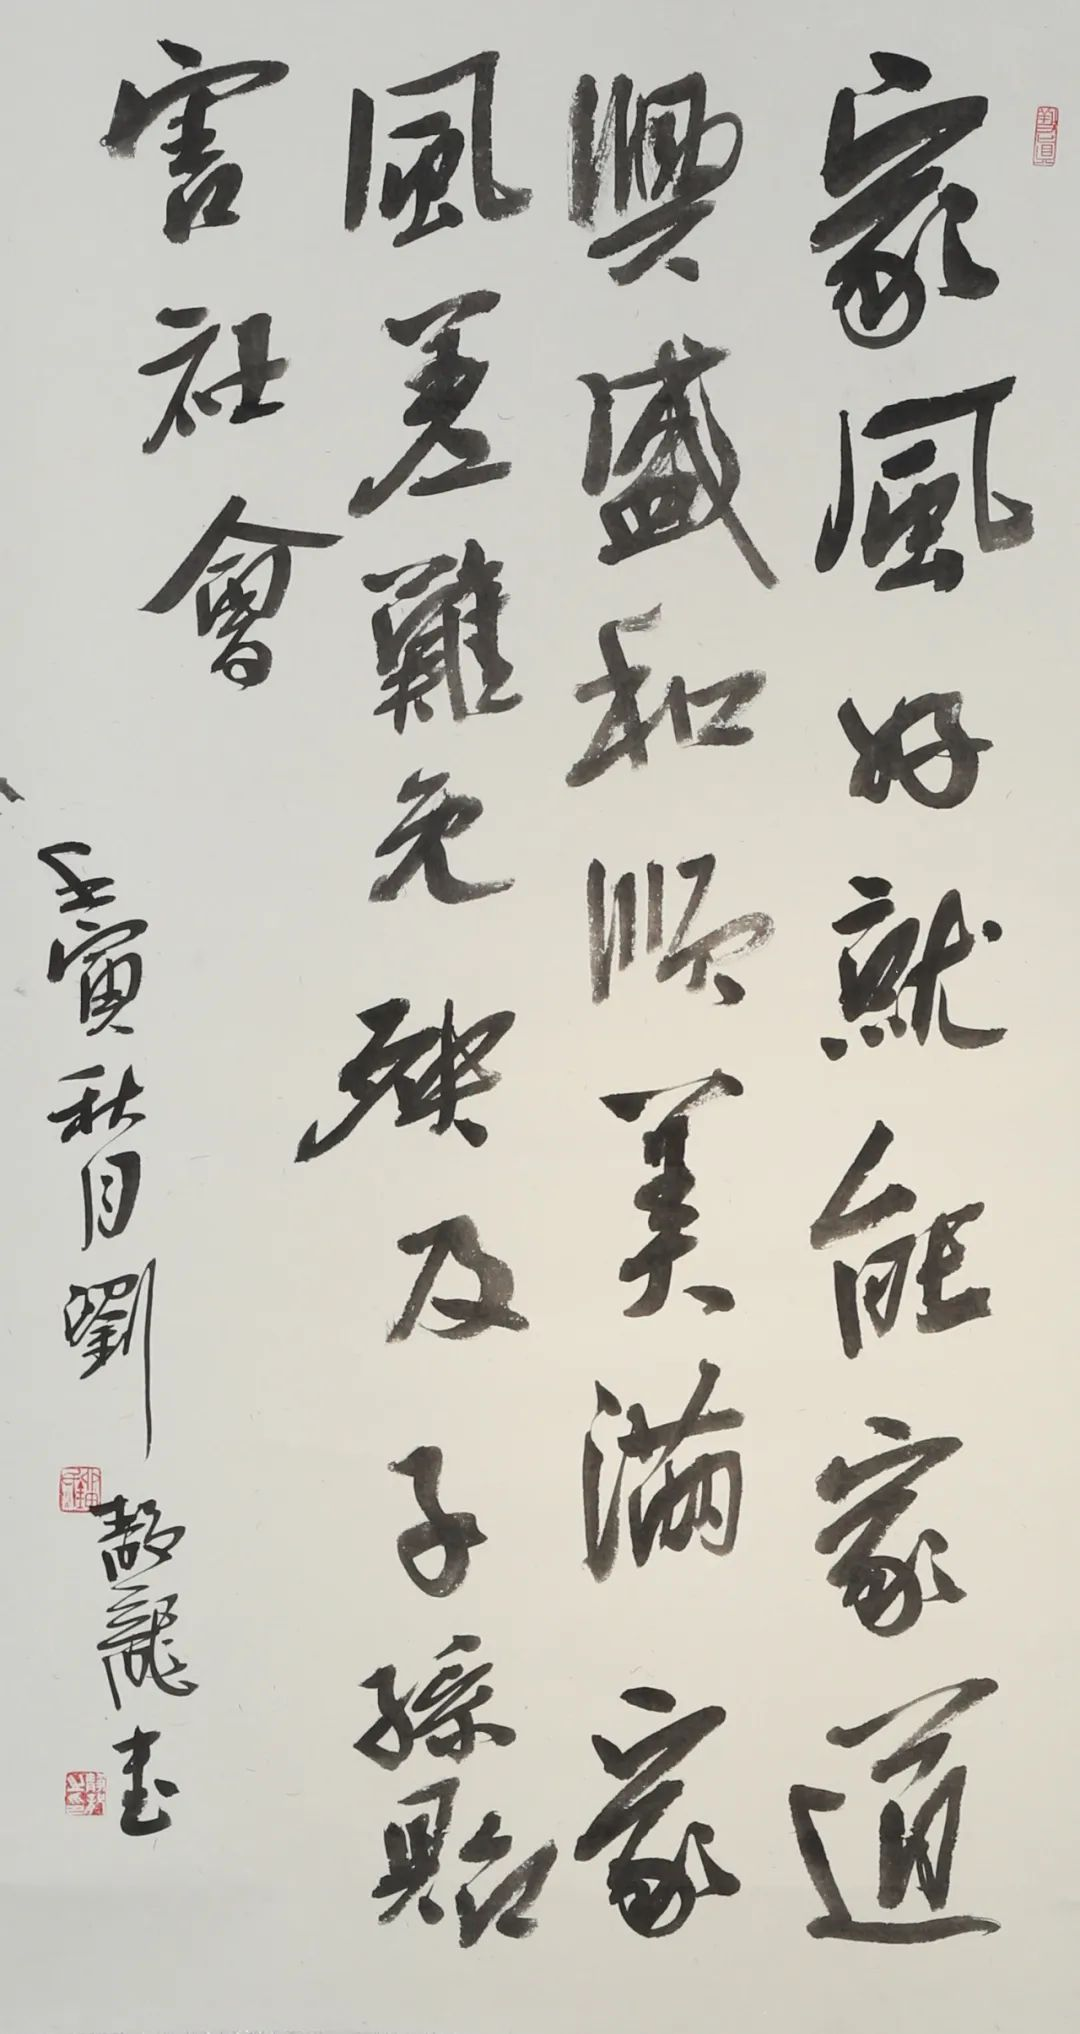 家風好就能家道
興盛和順美滿家
風差難免殃及子孫貽
害社會
壬寅秋月劉龍書